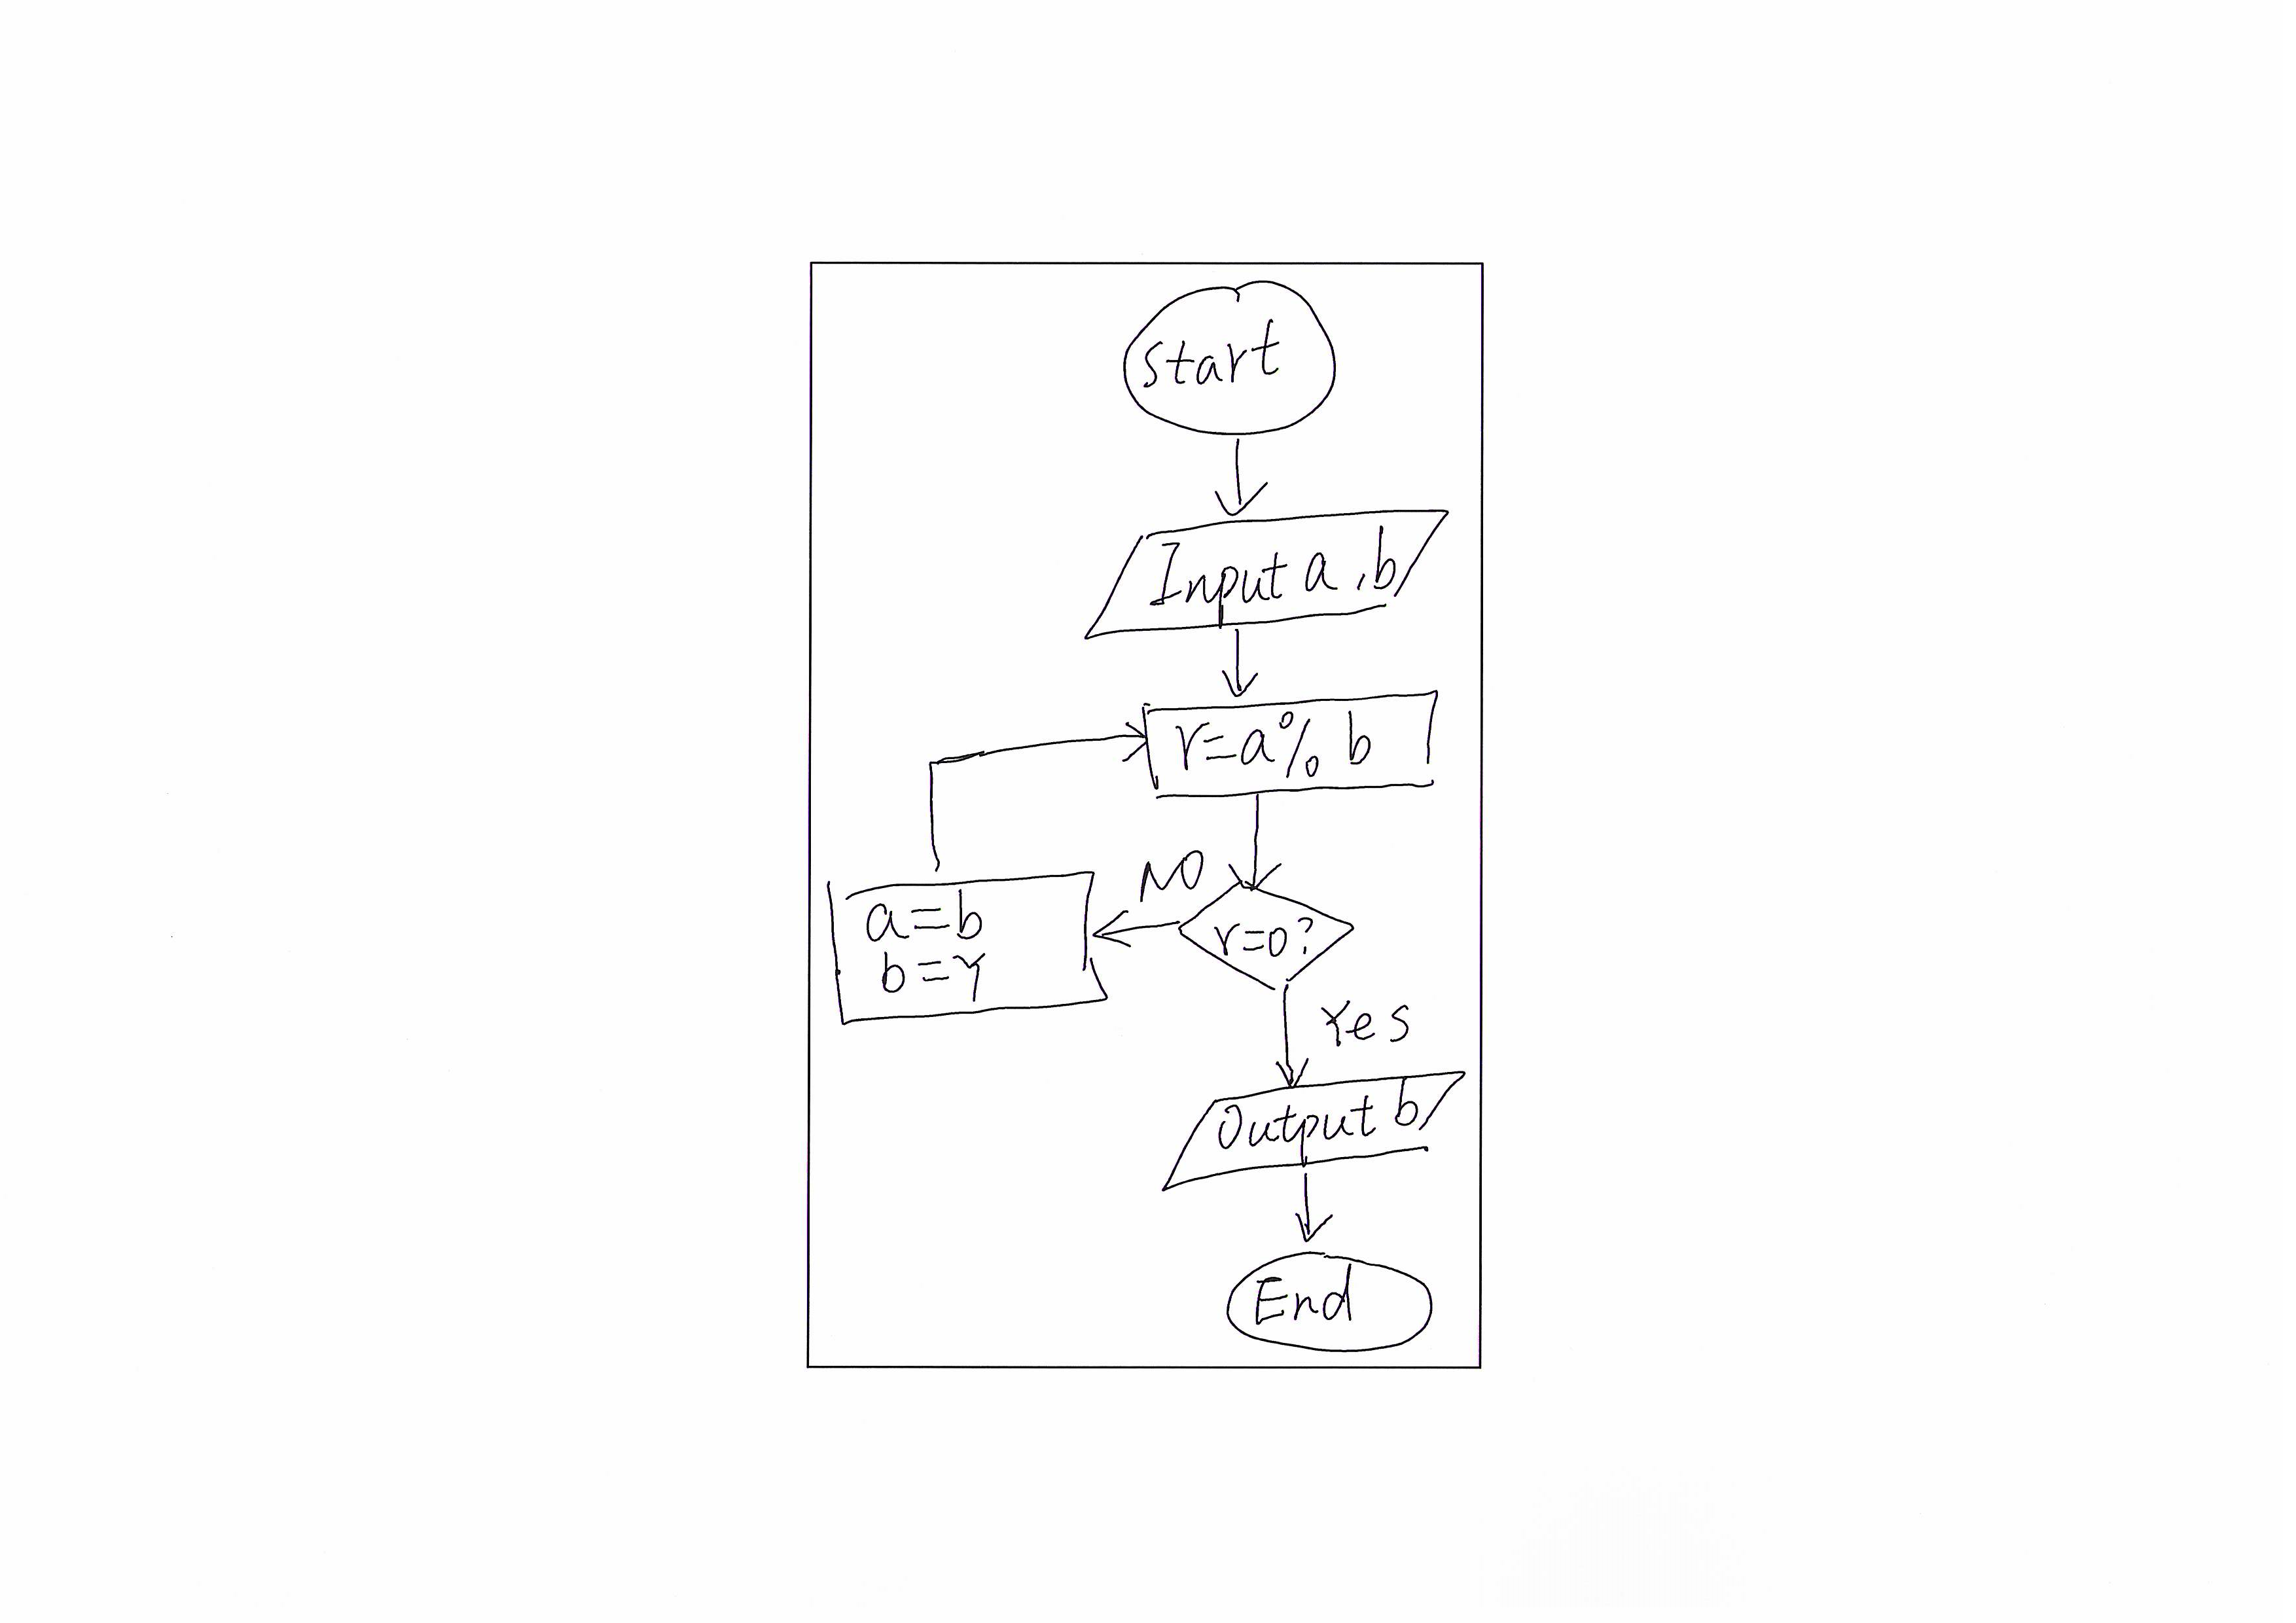 start
Input a, b
r=a% b
NO
r=0?
a=b
b=r
Yes
Output b
End